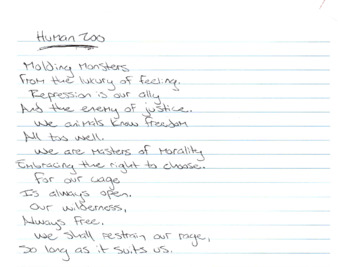 Human Zoo
Molding Monsters
From the luxury of feeling.
Repression is our ally
And the enemy of justice.
We animals know freedom
All too well.
We are Masters of Morality
Embracing the right to choose.
For our cage
Is always open.
Our wilderness,
Always free.
We shall restrain our rage,
So long as it suits us.